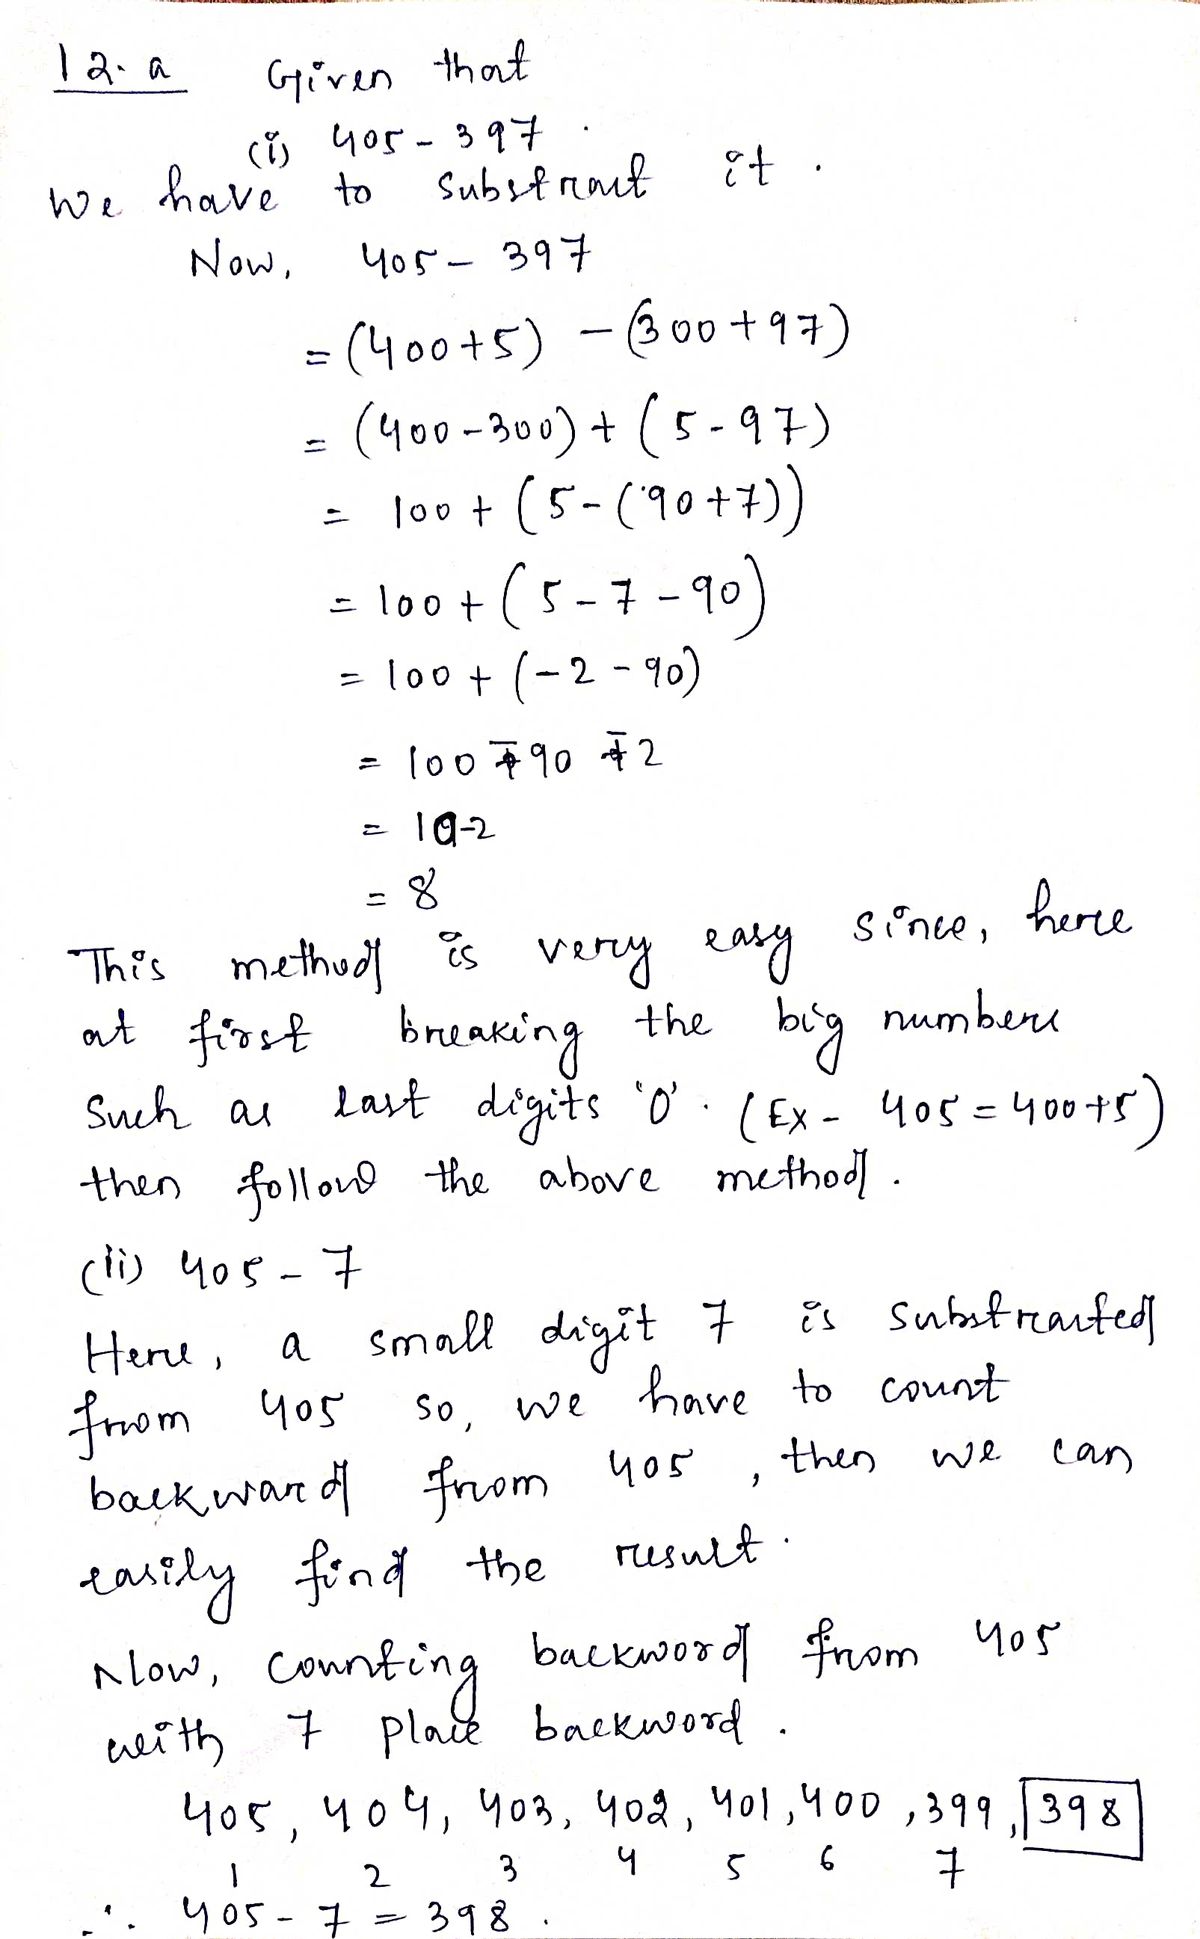 12. a Given that
(i) 405 - 397.
We have to substract it.
Now, 405 - 397
= (400+5) - (300+97)
= (400-300) + (5-97)
= 100 + (5-(90+7))
= 100 + (5-7-90)
= 100 + (-2-90)
= 100 - 90 - 2
= 10-2
= 8
This method is very easy since, here
at first breaking the big numbers
Such as last digits '0'. (Ex - 405 = 400+5)
then follow the above method.
(ii) 405 - 7
Here, a small digit 7 is substracted
from 405 so, we have to count
backward from 405, then we can
easily find the result.
Now, counting backword from 405
with 7 place backword.
405, 404, 403, 402, 401, 400, 399, 398
1 2 3 4 5 6 7
∴ 405 - 7 = 398.